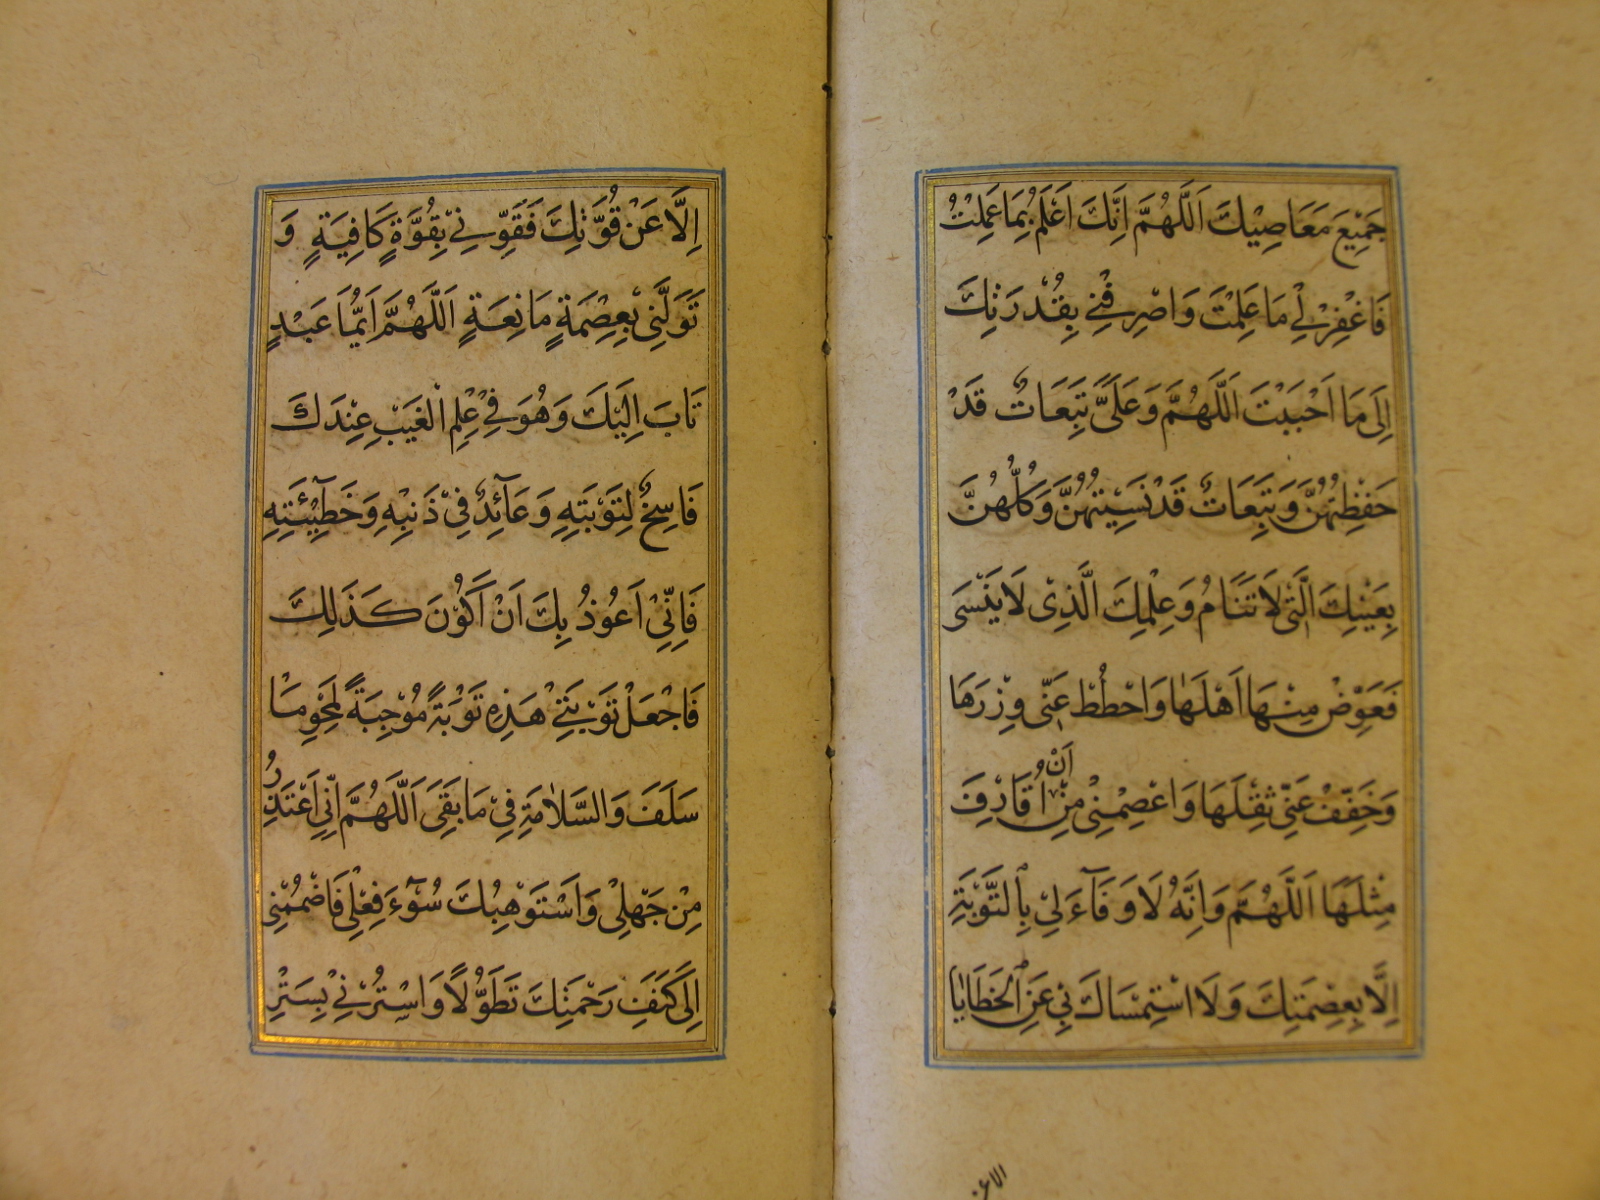 جَمِيْعَ مَعَاصِيْكَ اَللّٰهُمَّ اِنَّكَ اَعْلَمُ بِمَا عَمِلْتُ
فَاغْفِرْ لِيْ مَا عَلِمْتَ وَاصْرِفْنِيْ بِقُدْرَتِكَ
اِلَى مَا اَحْبَبْتَ اَللّٰهُمَّ وَعَلَيَّ تَبِعَاتٌ قَدْ
حَفِظْتُهُنَّ وَتَبِعَاتٌ قَدْ نَسِيْتُهُنَّ وَكُلُّهُنَّ
بِعَيْنِكَ الَّتِيْ لَا تَنَامُ وَعِلْمِكَ الَّذِيْ لَا يَنْسَى
فَعَوِّضْ مِنْهَا اَهْلَهَا وَاحْطُطْ عَنِّيْ وِزْرَهَا
وَخَفِّفْ عَنِّيْ ثِقْلَهَا وَاعْصِمْنِيْ مِنْ اَنْ اُقَارِفَ
مِثْلَهَا اَللّٰهُمَّ وَاِنَّهُ لَا وَفَآءَ لِيْ بِالتَّوْبَةِ
اِلَّا بِعِصْمَتِكَ وَلَا اسْتِمْسَاكَ بِيْ عَنِ الْخَطَايَا
اِلَّا عَنْ قُوَّتِكَ فَقَوِّنِيْ بِقُوَّةٍ كَافِيَةٍ وَ
تَوَلَّنِيْ بِعِصْمَةٍ مَانِعَةٍ اَللّٰهُمَّ اَيُّمَا عَبْدٍ
تَابَ اِلَيْكَ وَهُوَ فِيْ عِلْمِ الْغَيْبِ عِنْدَكَ
فَاسِخٌ لِتَوْبَتِهِ وَعَآئِدٌ فِيْ ذَنْبِهِ وَخَطِيْئَتِهِ
فَاِنِّيْ اَعُوْذُ بِكَ اَنْ اَكُوْنَ كَذَلِكَ
فَاجْعَلْ تَوْبَتِيْ هَذِهِ تَوْبَةً مُوْجِبَةً لِمَحْوِ مَا
سَلَفَ وَالسَّلَامَةِ فِيْ مَا بَقِيَ اَللّٰهُمَّ اِنِّيْ اَعْتَذِرُ
مِنْ جَهْلِيْ وَاَسْتَوْهِبُكَ سُوْٓءَ فِعْلِيْ فَاضْمُمْنِيْ
اِلَى كَنَفِ رَحْمَتِكَ تَطَوُّلًا وَاسْتُرْنِيْ بِسَتْرِ